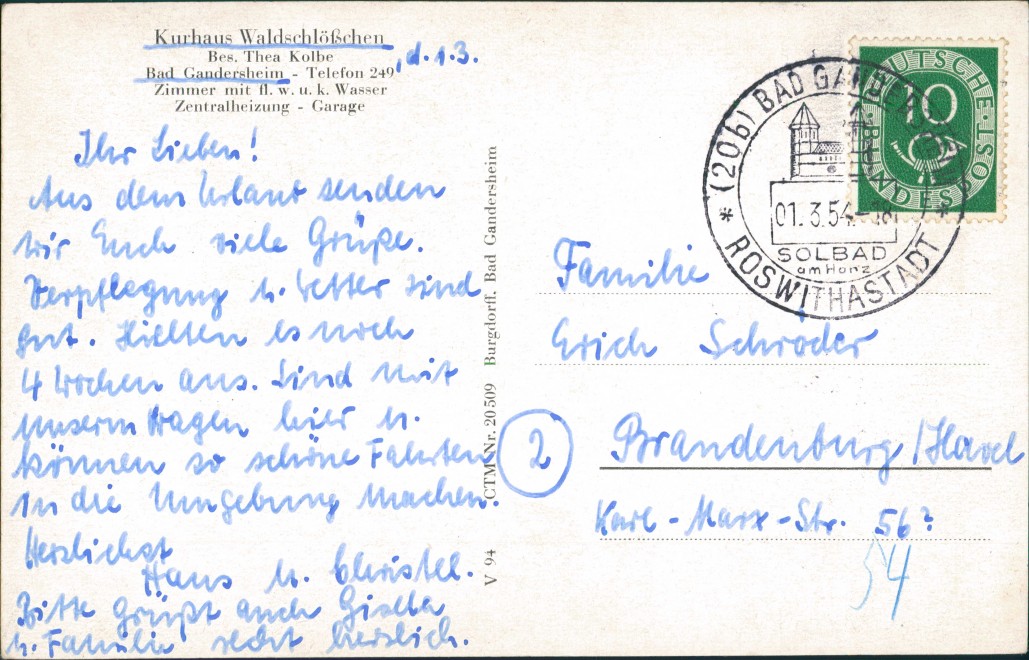 Kurhaus Waldschlößchen
Bes. Thea Kolbe
Bad Gandersheim - Telefon 249, d. 1.3.
Zimmer mit fl. w. u. k. Wasser
Zentralheizung - Garage
Ihr Lieben!
Aus dem Urlaub senden
wir Euch viele Grüße.
Verpflegung u. Wetter sind
gut. Hielten es noch
4 Wochen aus. Sind mit
unserm Wagen hier u.
können so schöne Fahrten
in die Umgebung machen.
Herzlichst
Hans u. Christel.
Bitte grüßt auch Gisela
u. Familie recht herzlich.
V 94 CTM-Nr. 20 509 Burgdorff, Bad Gandersheim
* (20b) BAD GANDERSHEIM *
01.3.54.-18
SOLBAD
am Harz
ROSWITHASTADT
DEUTSCHE BUNDESPOST
10
Familie
Erich Schröder
2 Brandenburg/Havel
Karl-Marx-Str. 56?
54